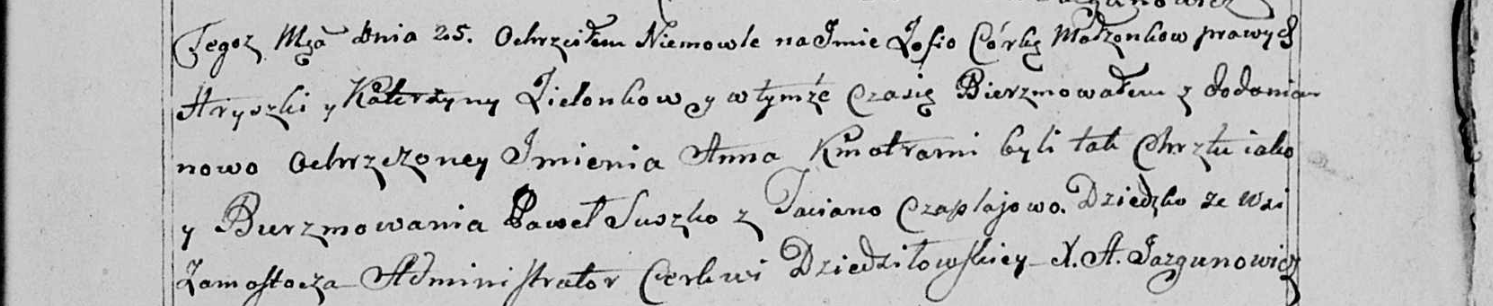 Tegoż Mca dnia 25. Ochrzciłem Niemowle na Jmie Zofio Córkę Małżonkow prawych
Hryszki y Katerzyny Zielonkow y w tymże czasię Bierzmowałem z dodaniem
nowo ochrzczoney Jmienia Anna Kmotrami byli tak Chrztu iako
y Bierzmowania Paweł Suszko z Taciano Czaplajowo. Dziedzko ze Wsi
Zamostocza Administrator Cerkwi Dziedziłowskiey X. A. Jazgunowicz